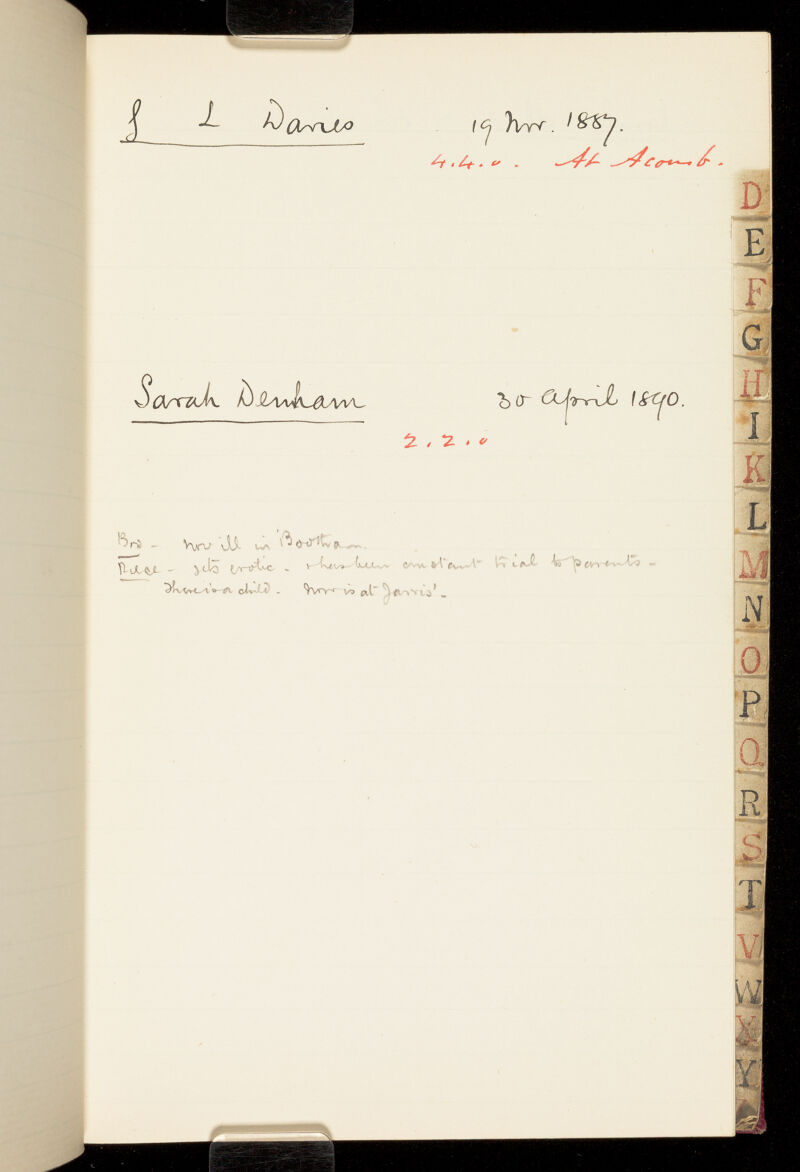 J L Davies 19 Nov. 1887.
4.4.0. At Acomb.
Sarah Denham 30 April 1890.
2.2.0
Bro - now ill in Bootham.
Niece - gets erotic - & has been constant trial to parents -
There is a child. Now is at Jarvis' -
D
E
F
G
H
I
K
L
M
N
O
P
Q
R
S
T
V
W
X
Y